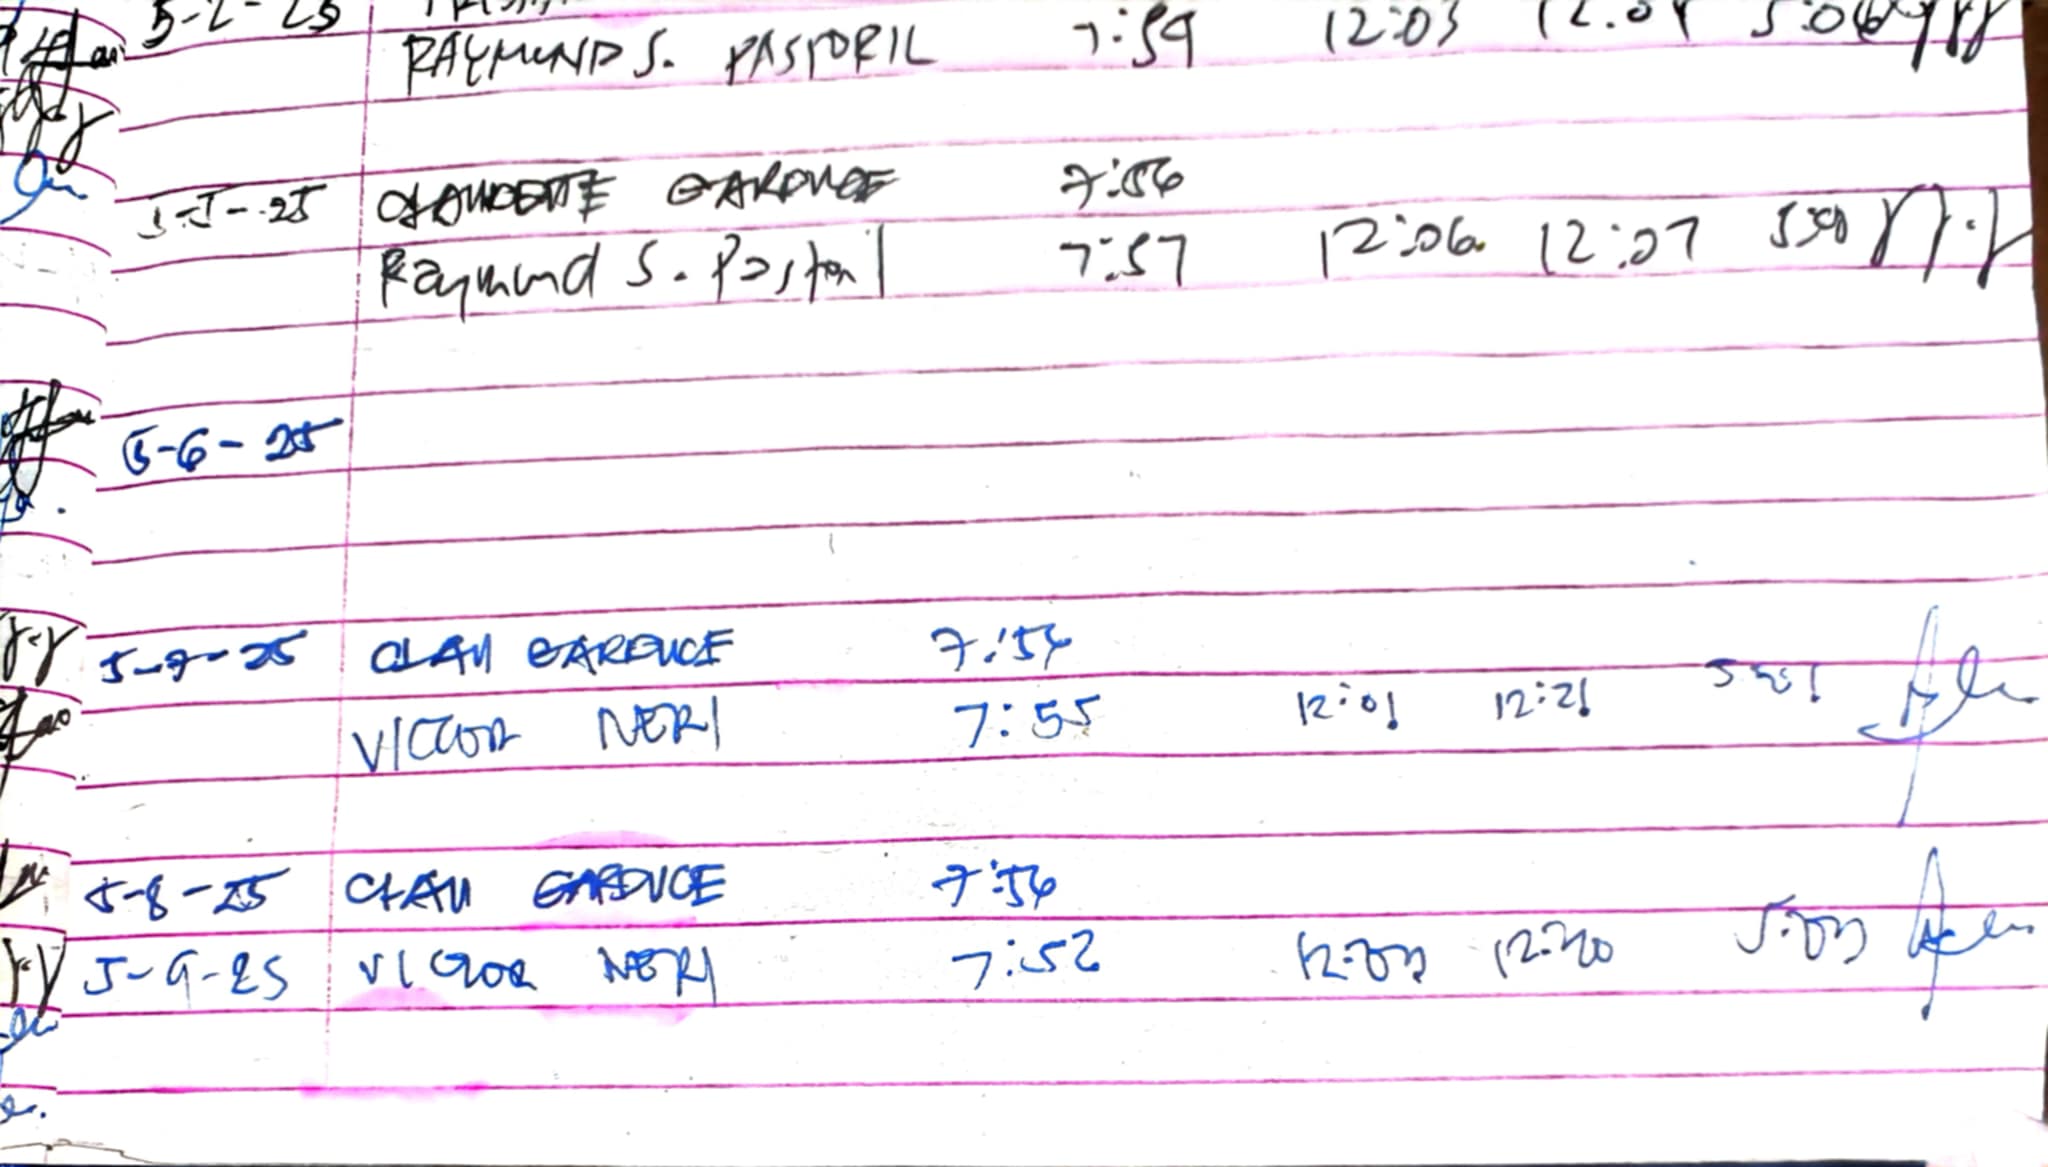 5-2-25
RAYMUND S. PASTORIL 7:59 12:03 12:04 5:06
5-5-25 CLAUDETTE GARDUCE 7:56
Raymund S. Pastoril 7:57 12:06 12:07
5-6-25
5-7-25 CLAU GARDUCE 7:54
VICTOR NERI 7:55 12:01 12:21 5:01
5-8-25 CLAU GARDUCE 7:56
5-9-25 VICTOR NERI 7:52 12:03 12:20 5:03